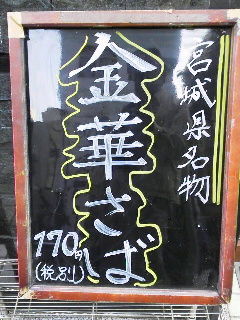 宮城県名物
金華さば
170円
(税別)